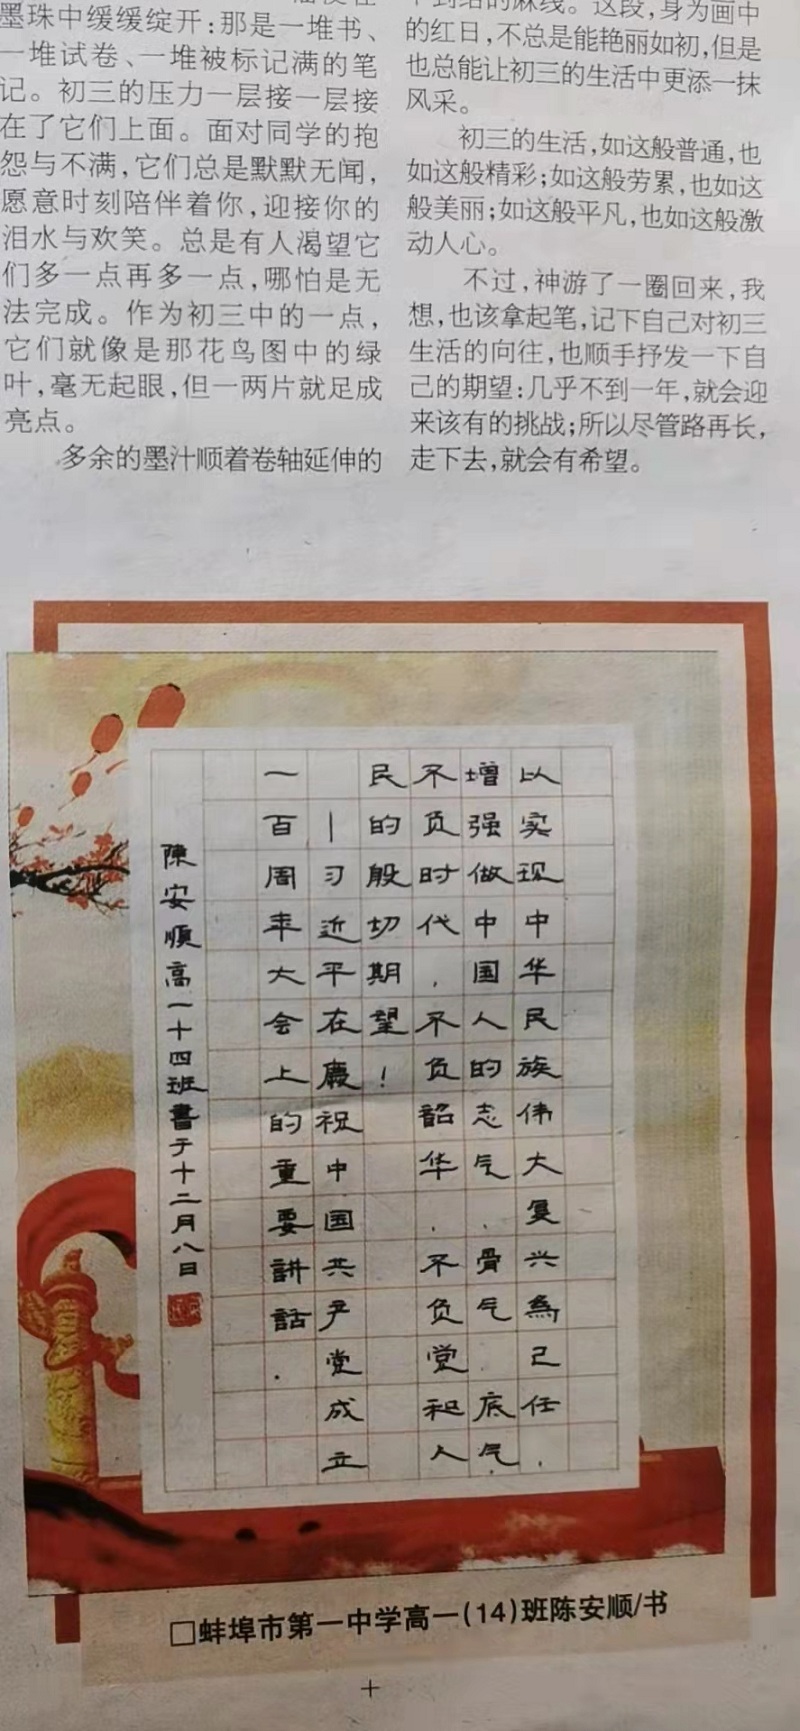 墨珠中缓缓绽开：那是一堆书、
一堆试卷、一堆被标记满的笔
记。初三的压力一层接一层接
在了它们上面。面对同学的抱
怨与不满，它们总是默默无闻，
愿意时刻陪伴着你，迎接你的
泪水与欢笑。总是有人渴望它
们多一点再多一点，哪怕是无
法完成。作为初三中的一点，
它们就像是那花鸟图中的绿
叶，毫无起眼，但一两片就足成
亮点。
多余的墨汁顺着卷轴延伸的
的麻线。这段，身为画中
的红日，不总是能艳丽如初，但是
也总能让初三的生活中更添一抹
风采。
初三的生活，如这般普通，也
如这般精彩；如这般劳累，也如这
般美丽；如这般平凡，也如这般激
动人心。
不过，神游了一圈回来，我
想，也该拿起笔，记下自己对初三
生活的向往，也顺手抒发一下自
己的期望：几乎不到一年，就会迎
来该有的挑战；所以尽管路再长，
走下去，就会有希望。
以实现中华民族伟大复兴为己任，
增强做中国人的志气、骨气、底气，
不负时代，不负韶华，不负党和人
民的殷切期望！
—习近平在庆祝中国共产党成立
一百周年大会上的重要讲话。
陳安順高一十四班書于十二月八日
□蚌埠市第一中学高一(14)班陈安顺/书